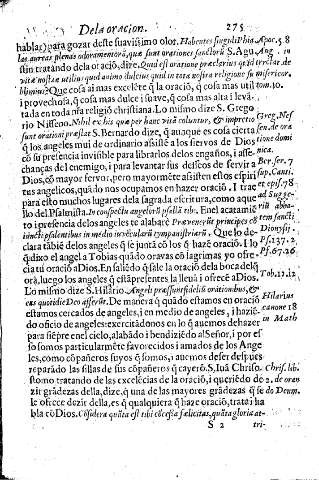 De la oracion. 275
hablar) para gozar deste suauissimo olor. Habentes singuli phia
las aureas plenas odoramentorũ, quæ sunt orationes sanctorũ S. Agu
stin tratando dela oraciõ, dize. Quid est oratione præclarius, quid
vita nostræ utilius quid animo dulcius quid in tota nostra religione
blimius? Que cosa ai mas excelẽte q̃ la oraciõ, q̃ cosa mas util
i prouechosa, q̃ cosa mas dulce i suaue, q̃ cosa mas alta i leuã-
tada en toda nr̃a religiõ christiana. Lo mismo dize S. Grego
rio Nisseno. Nihil ex his quæ per hanc vitã coluntur, & in pretio
sunt orationi præstat S. Bernardo dize, q̃ auque es cosa cierta
q̃ los angeles mui de ordinario asistẽ a los siervos de Dios
cõ su presencia inuisible para librarlos delos engaños, i asse-
chanças del enemigo, i para leuantar sus desseos de servir a
Dios, cõ mayor feruor, pero mayormẽte asisten estos espiri
tus angelicos, quãdo nos ocupamos en hazer oraciõ. I trae
para esto muchos lugares dela sagrada escritura, como aque
llo del Psalmista. In conspectu angelorũ psallã tibi. En el acatamiẽ
to i presencia delos angeles te alabarè Præuenerunt principes cõ
iuncti psallentibus in medio iuvẽcularũ tympanistriarũ. Que lo de-
clara tãbiẽ delos angeles q̃ se jũtã cõ los q̃ hazẽ oraciõ. I lo
q̃ dixo el angel a Tobias quãdo orauas cõ lagrimas yo ofre-
cia tu oraciõ a Dios. En saliẽdo q̃ sale la oraciõ dela boca del q̃
ora, luego los angeles q̃ estã presentes la lleuã i ofrecẽ a Dios.
Lo mismo dize S. Hilario. Angeli præsunt fidelium orationibus, & 
eas quotidie Deo offerũt. De manera q̃ quãdo estamos en oraciõ
estamos cercados de angeles, i en medio de angeles, i haziẽ-
do oficio de angeles: exercitãdonos en lo q̃ auemos de hazer
para siẽpre enel cielo, alabãdo i bendiziẽdo al Señor, i por es
so somos particularmẽte fauorecidos i amados de los Ange
les, como cõpañeros suyos q̃ somos, i auemos de ser despues
reparãdo las sillas de sus cõpañeros q̃ cayerõ. S. Iuã Chriso.
stomo tratando de las excelẽcias de la oraciõ, i queriẽdo de
zir grãdezas della, dize, q̃ una de las mayores grãdezas q̃ se
le ofrece dezir della, es q̃ qualquiera q̃ haze oraciõ, trata i ha
bla cõ Dios. Cõsidera quãta est tibi cõcessa fælicitas, quãta gloria at-
S 2 tri-
Apoc. 5 8
Aug. in
tom. 10.
Greg. Nis
sen. de ora
tione domi
nica.
Ber. ser. 7
sup. Cant.
et epis. 78
ad Sugge-
riũ abba-
tem sancti
Dionysij.
Ps. 137. 2
Ps. 67. 26
Tob. 12. 12
Hilarius
canone 18
in Math
Chris. lib.
2. de oran
do Deum.